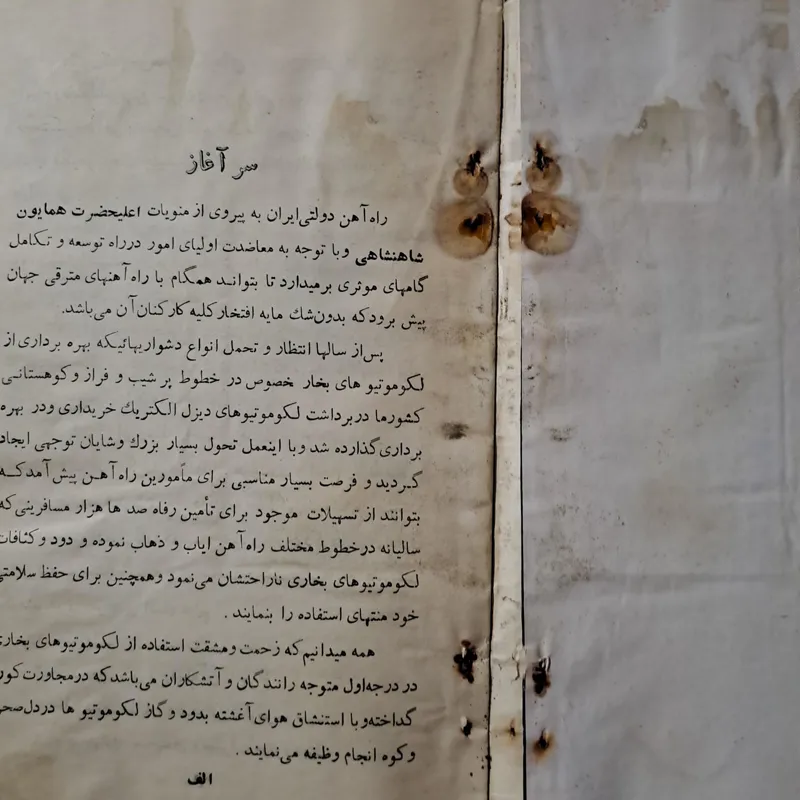 سر آغاز
راه آهن دولتی ایران به پیروی از منویات اعلیحضرت همایون
شاهنشاهی و با توجه به معاضدت اولیای امور در راه توسعه و تکامل
گامهای موثری برمیدارد تا بتواند همگام با راه آهنهای مترقی جهان
پیش برود که بدون شك مایه افتخار کلیه کارکنان آن می‌باشد.
پس از سالها انتظار و تحمل انواع دشواریهائیکه بهره برداری از
لکوموتیو های بخار خصوص در خطوط پر شیب و فراز و کوهستانی
کشور ما دربرداشت لکوموتیوهای دیزل الکتریك خریداری و در بهره
برداری گذارده شد و با اینعمل تحول بسیار بزرك و شایان توجهی ایجاد
گردید و فرصت بسیار مناسبی برای مأمورین راه آهن پیش آمد که
بتوانند از تسهیلات موجود برای تأمین رفاه صد ها هزار مسافرینی که
سالیانه در خطوط مختلف راه آهن ایاب و ذهاب نموده و دود و کثافات
لکوموتیوهای بخاری ناراحتشان می‌نمود و همچنین برای حفظ سلامتی
خود منتهای استفاده را بنمایند .
همه میدانیم که زحمت و مشقت استفاده از لکوموتیوهای بخاری
در درجه اول متوجه رانندگان و آتشکاران می‌باشد که در مجاورت
گداخته و با استنشاق هوای آغشته بدود و گاز لکوموتیو ها در دل
و کوه انجام وظیفه می‌نمایند .
الف